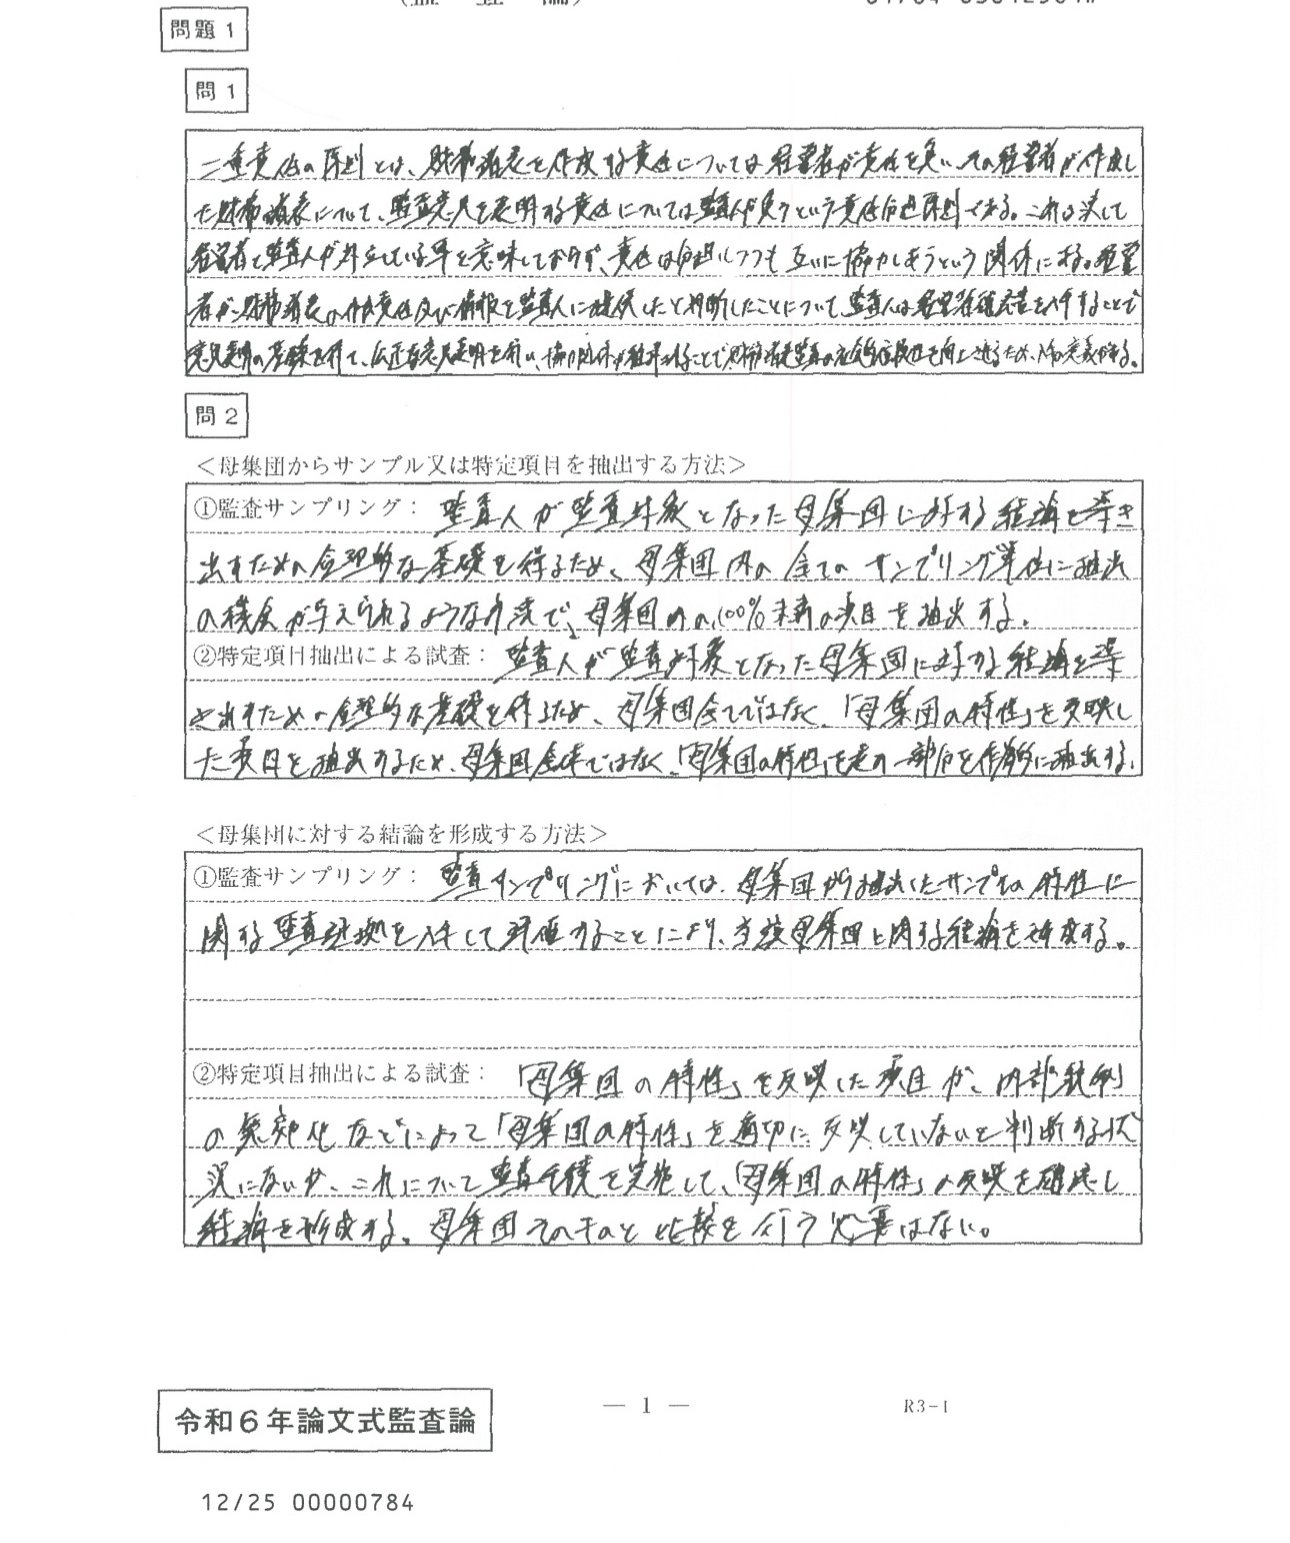 問題1
問1
二重責任の原則とは、財務諸表を作成する責任については経営者が責任を負い、その経営者が作成し
た財務諸表について、監査意見を表明する責任については監査人が負うという責任分担原則である。これは決して
経営者と監査人が対立している事を意味しておらず、責任は分担しつつも互いに協力しあうという関係にある。経営
者が財務諸表の作成責任及び情報を監査人に提供したと判断したことについて、監査人は経営者確認書を入手することで
意見表明の基礎を得て、公正な意見表明を行い、協力関係が
問2
<母集団からサンプル又は特定項目を抽出する方法>
①監査サンプリング: 監査人が監査対象となった母集団に対する結論を導き
出すための合理的な基礎を得るため、母集団内の全てのサンプリング単位に抽出
の機会が与えられるような方法で、母集団内の100%未満の項目を抽出する。
②特定項目抽出による試査: 監査人が監査対象となった母集団に対する結論を導
き出すための合理的な基礎を得るため、母集団全てではなく、「母集団の特性」を反映し
た項目を抽出するため、母集団全体ではなく、「母集団の特性」を表す一部分を作為的に抽出する。
<母集団に対する結論を形成する方法>
①監査サンプリング: 監査サンプリングにおいては、母集団から抽出したサンプルの特性に
関する監査証拠を入手して評価することにより、当該母集団に関する結論を形成する。
②特定項目抽出による試査: 「母集団の特性」を反映した項目が、内部統制
の無効化などによって「母集団の特性」を適切に反映していないと判断する状
況にないか、これについて監査手続を実施して、「母集団の特性」の反映を確認し
結論を形成する。母集団そのものと比較を行う必要はない。
— 1 —
R3-1
令和6年論文式監査論
12/25 00000784